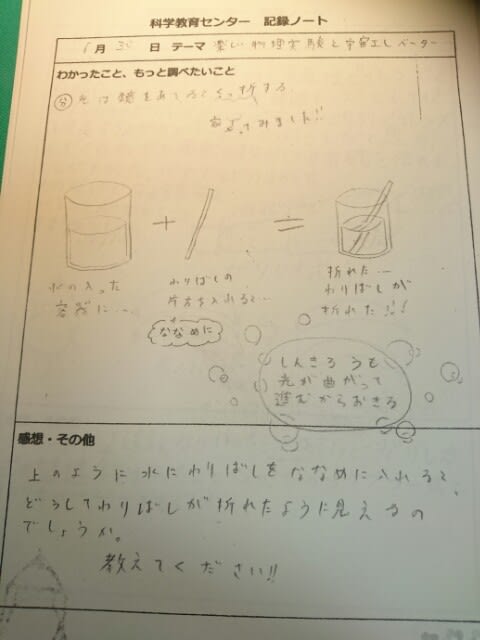 科学教育センター 記録ノート
6月30日 テーマ 楽しい物理実験と宇宙エレベーター
わかったこと、もっと調べたいこと
分 光は鏡をあてるとくっ折する
家でやってみました!!
+ =
水の入った
容器に…
わりばしの
片方を入れると…
ななめに
折れた…
わりばしが
折れた!!!
しんきろうも
光が曲がって
進むからおきる
感想・その他
上のように水にわりばしをななめに入れると、
どうしてわりばしが折れたように見えるの
でしょうか。
教えてください!!